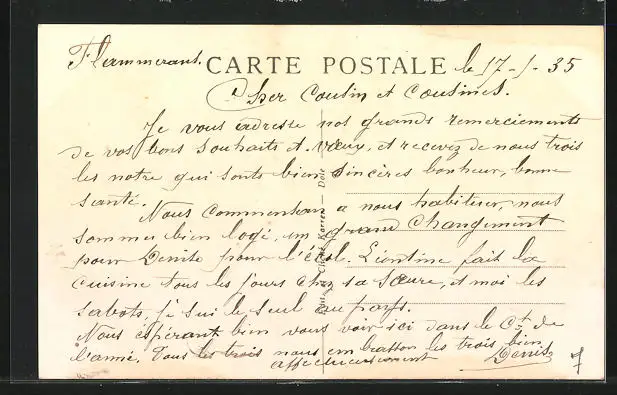 Flammerans. CARTE POSTALE le 17-1-35
Cher Cousin et Cousines.
Je vous adresse nos grands remerciements
de vos bons souhaits et vœux, et recevez de nous trois
les notre qui sonts bien sincères bonheur, bonne
santé.
Nous commenson a nous habituer, nous
sommes bien logé, un grand changement
pour Denise pour l'école. Léontine fait la
cuisine tous les jours chez sa sœure, et moi les
sabots, je sui le seul au pays.
Nous espérant bien vous voir ici dans le Ct de
l'anné. Tous les trois nous embrasson les trois bien
affectueusement Denis
Karrer — Dole